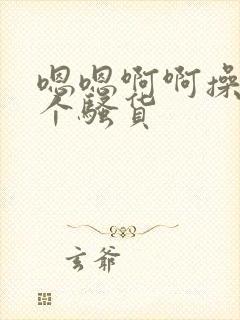 嗯嗯啊啊操
个骚货
玄爷